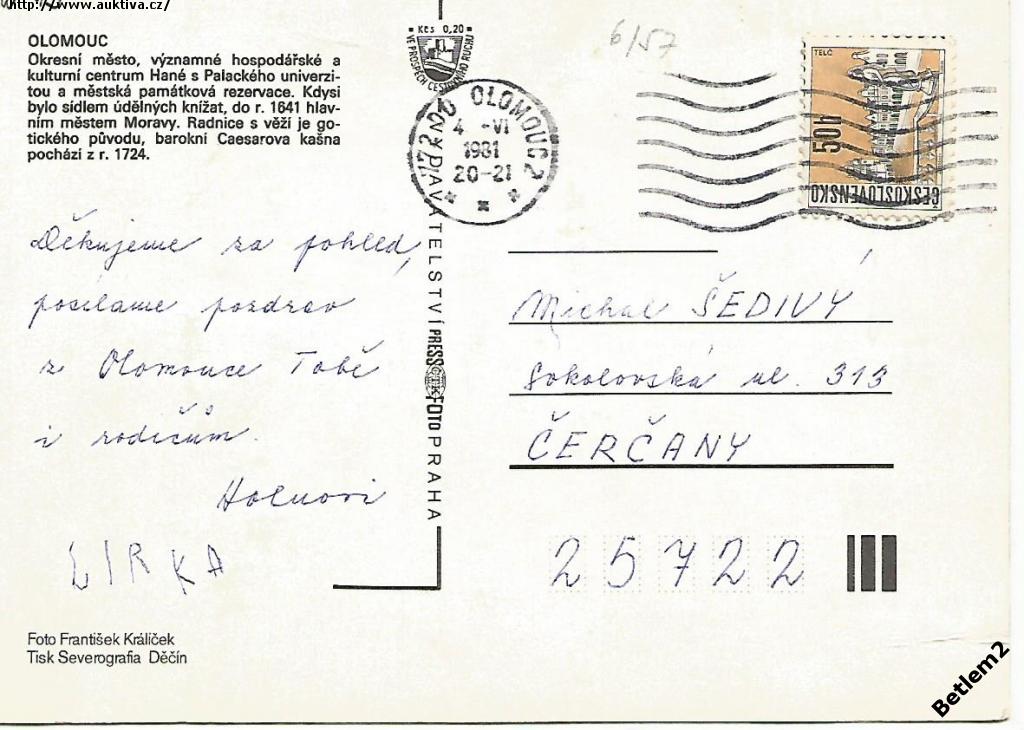 http://www.auktiva.cz/
OLOMOUC
Okresní město, významné hospodářské a
kulturní centrum Hané s Palackého univerzi-
tou a městská památková rezervace. Kdysi
bylo sídlem údělných knížat, do r. 1641 hlav-
ním městem Moravy. Radnice s věží je go-
tického původu, barokní Caesarova kašna
pochází z r. 1724.
Děkujeme za pohled,
posíláme pozdrav
z Olomouce Tobě
i rodičům.
Holuovi
LIRKA
Foto František Králíček
Tisk Severografia Děčín
Kčs 0,20
VE PROSPĚCH CESTOVNÍHO RUCHU
772 00 OLOMOUC 2
4.-VI
1981
20-21
VYDAVATELSTVÍ PRESSFOTO PRAHA
6/57
TELČ
50h
ČESKOSLOVENSKO
Michal ŠEDIVÝ
Sokolovská ul. 313
ČERČANY
25722
Betlem2